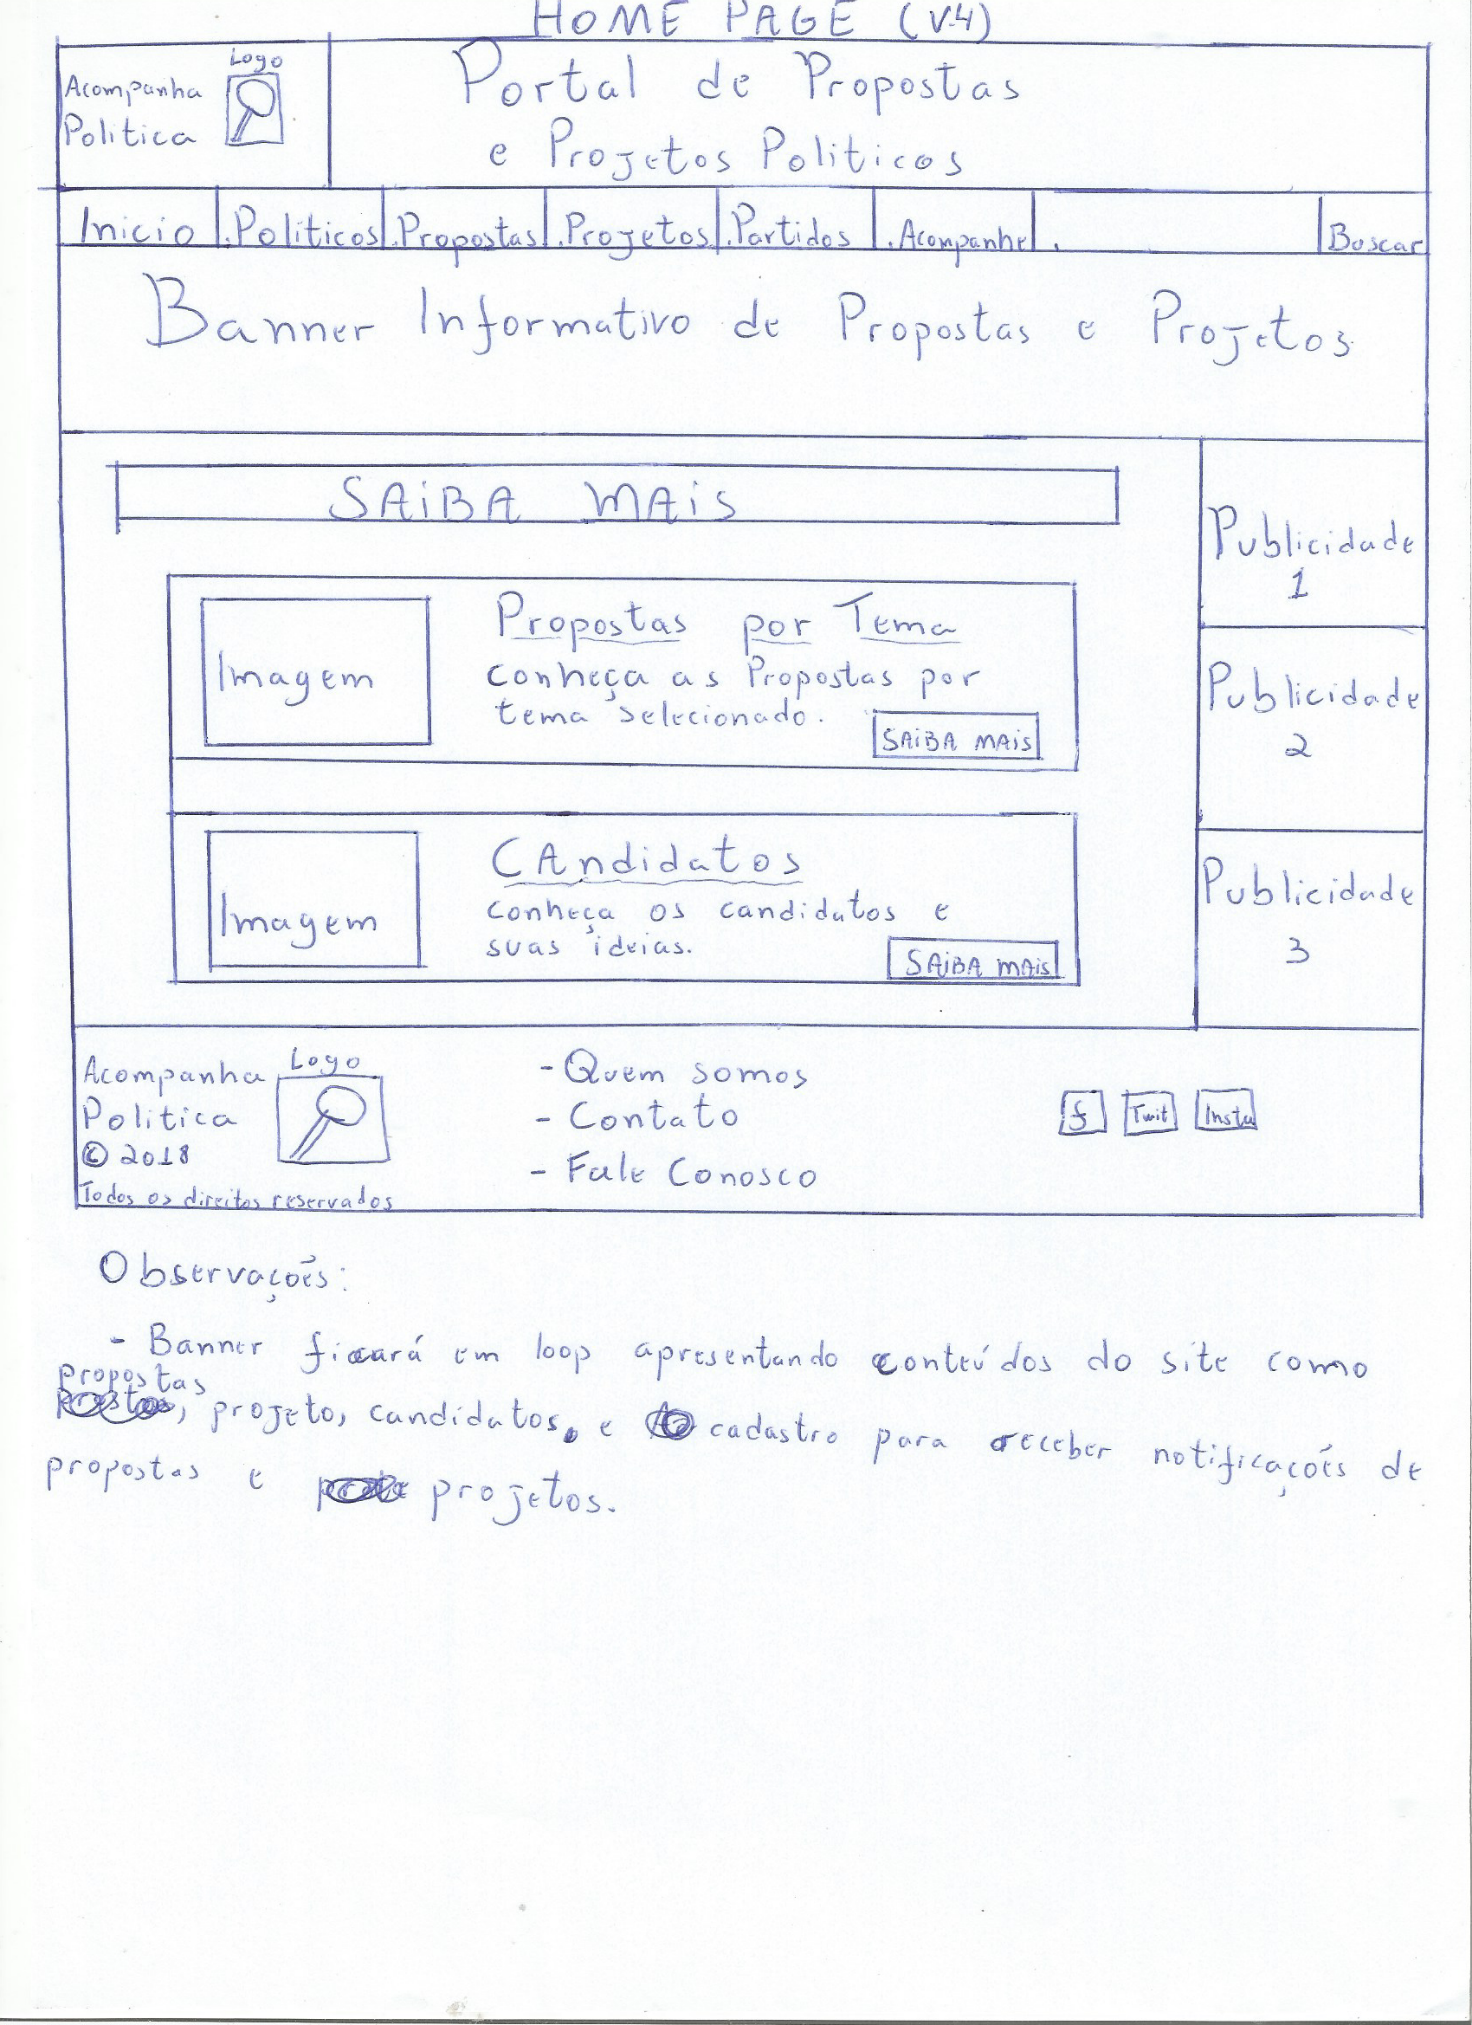 HOME PAGE (V.4)
Logo
Acompanha
Politica
Portal de Propostas
e Projetos Politicos
Inicio .Politicos .Propostas .Projetos .Partidos .Acompanhe . Buscar
Banner Informativo de Propostas e Projetos
SAiBA MAiS
Publicidade
1
Imagem
Propostas por Tema
conheça as Propostas por
tema selecionado.
SAiBA MAiS
Publicidade
2
Imagem
CAndidatos
conheça os candidatos e
suas ideias.
SAiBA MAiS
Publicidade
3
Acompanha
Politica
© 2018
Todos os direitos reservados
Logo
- Quem somos
- Contato
- Fale Conosco
f Twit Insta
Observações:
- Banner ficará em loop apresentando conteúdos do site como
propostas
, projeto, candidatos, e cadastro para receber notificações de
propostas e projetos.